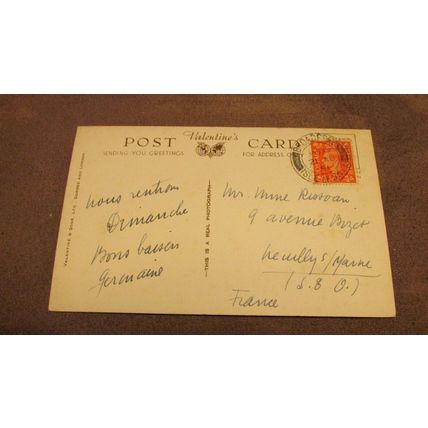 POST Valentine's CARD
SENDING YOU GREETINGS
FOR ADDRESS O
VALENTINE & SONS, LTD. DUNDEE AND LONDON
THIS IS A REAL PHOTOGRAPH
nous rentrons
Dimanche
Bons baisers
Germaine
Mr. Mme
9 avenue Bizet
Neuilly s/Marne
(S. & O.)
France